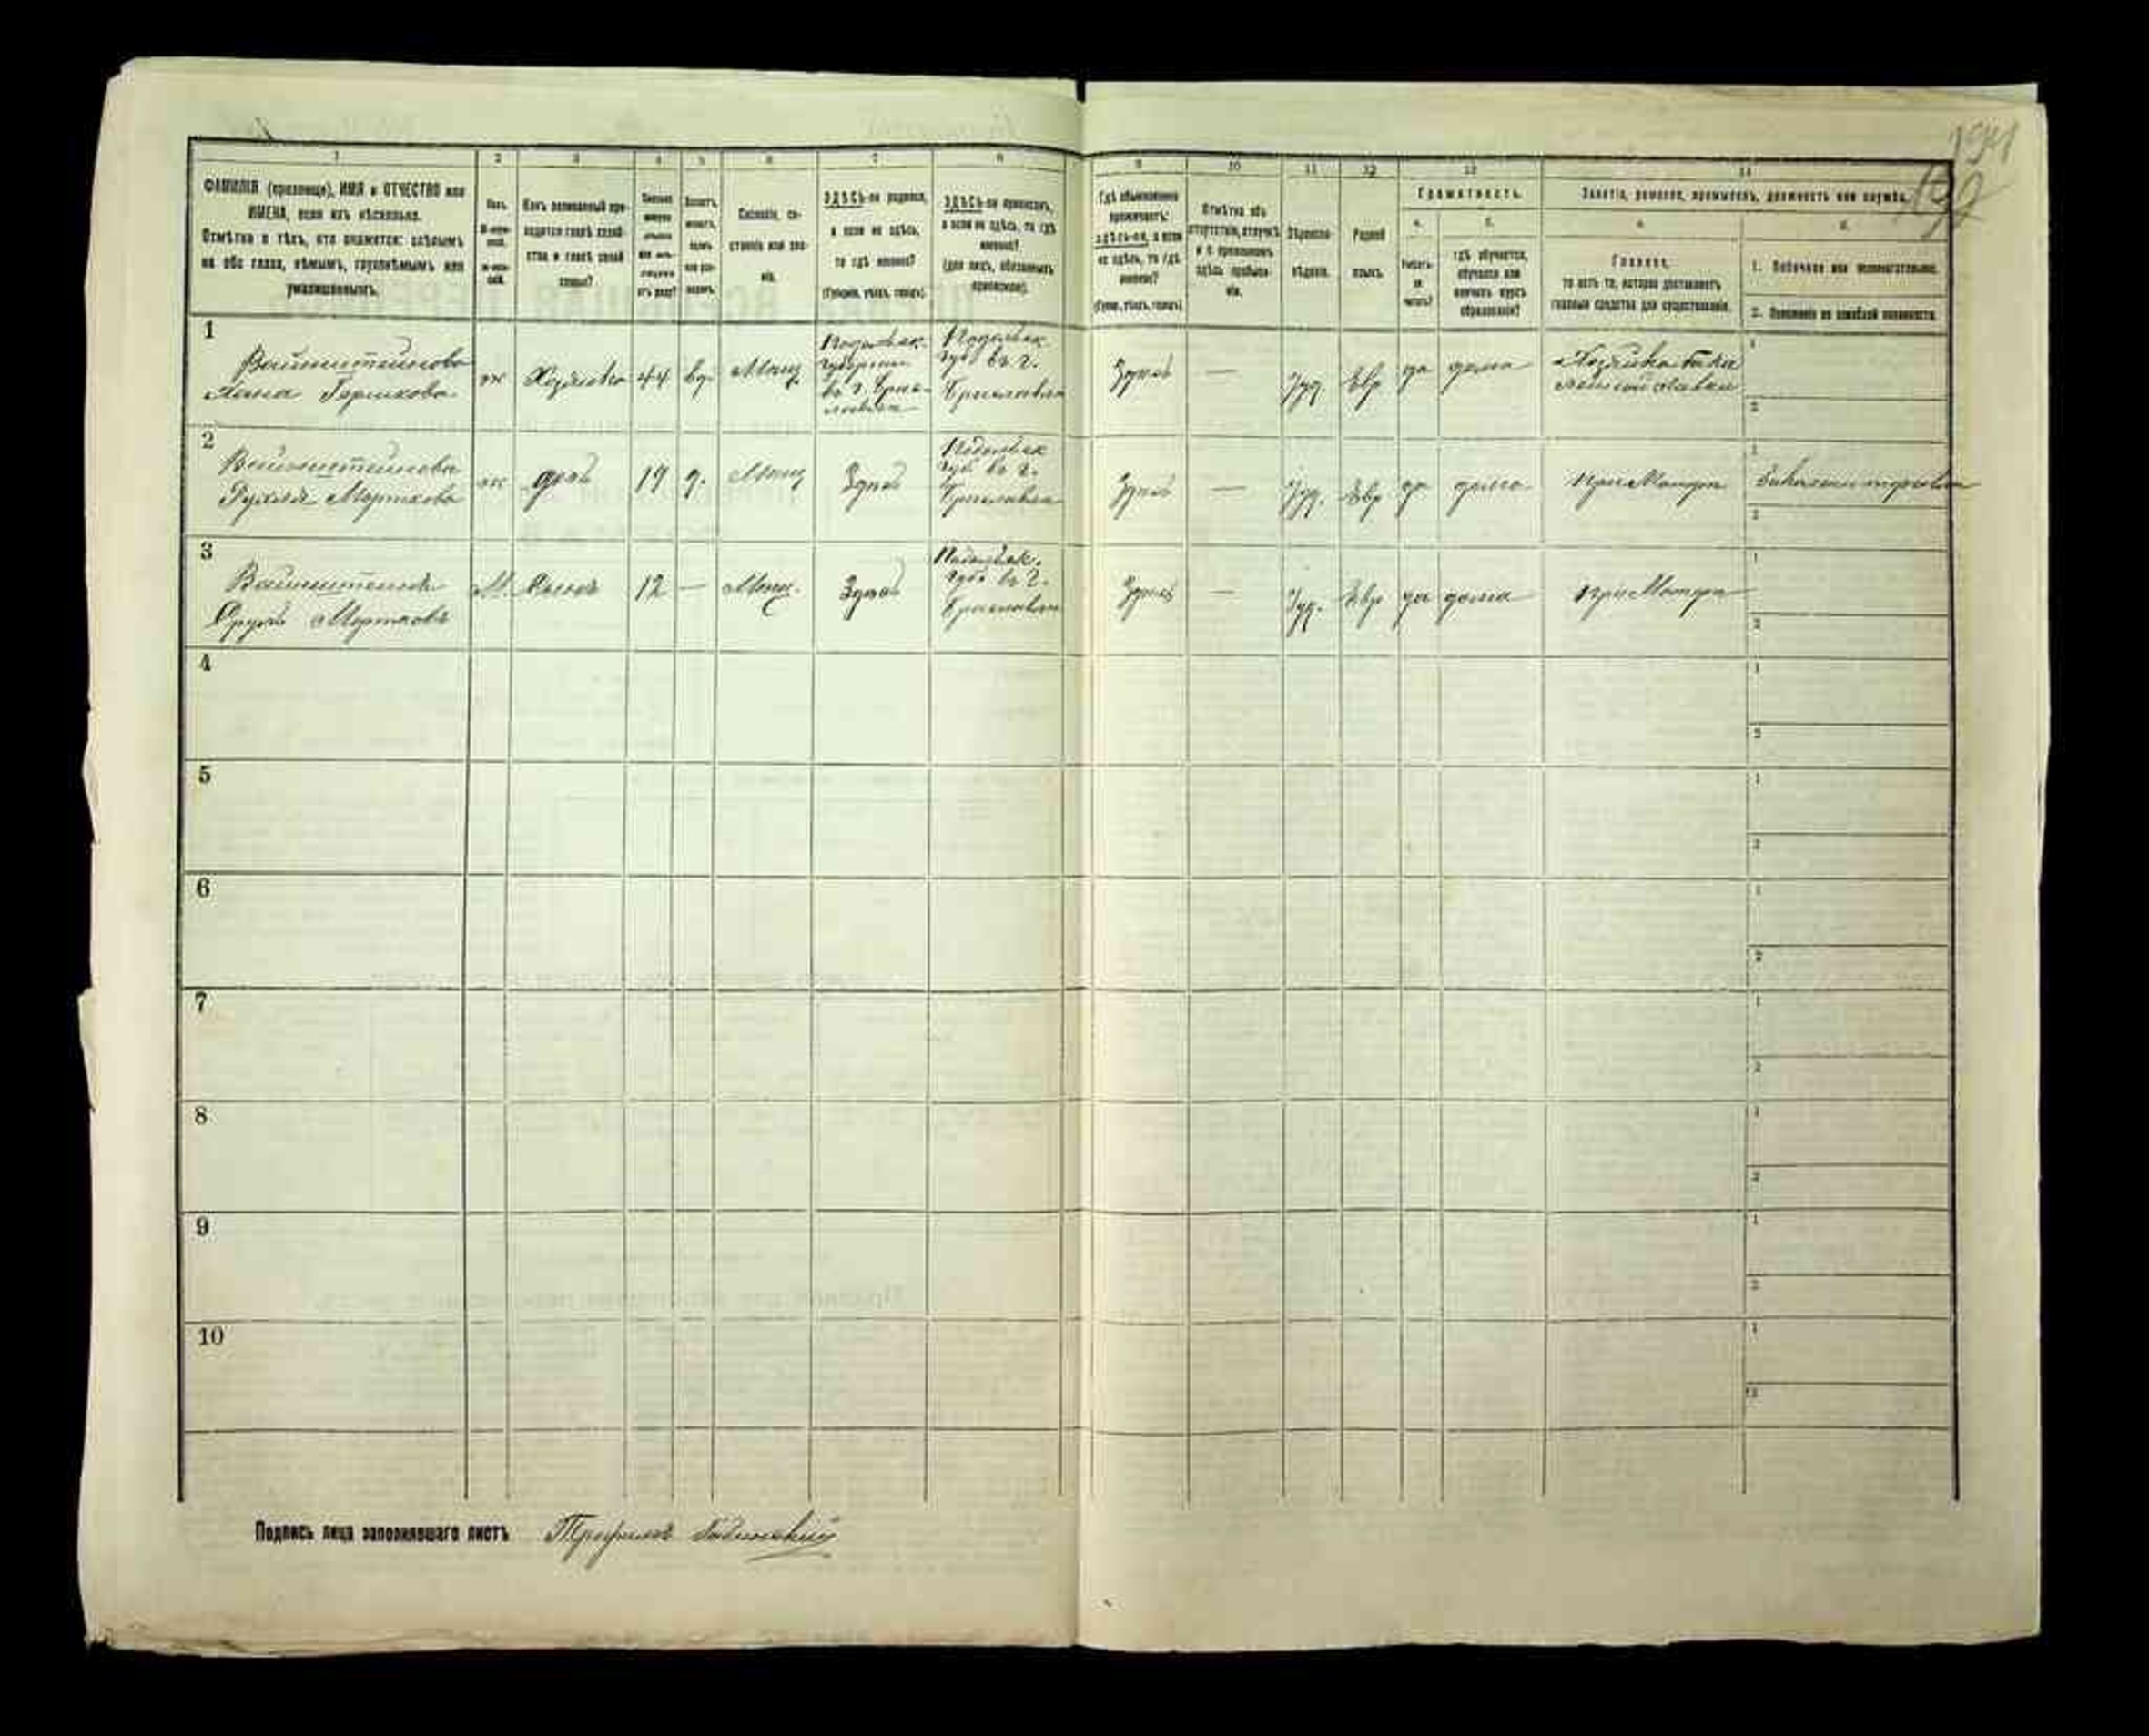 191
192
1
2
3
4
5
6
7
8
ФАМИЛІЯ (прозвище), ИМЯ и ОТЧЕСТВО или
ИМЕНА, если ихъ нѣсколько.
Отмѣтка о тѣхъ, кто окажется: слѣпымъ
на оба глаза, нѣмымъ, глухонѣмымъ или
умалишеннымъ.
Полъ.
Какъ записанный при-
ходится главѣ хозяй-
ства и главѣ своей
семьи?
Сословіе, со-
стояніе или зва-
ніе.
ЗДѢСЬ-ли родился,
а если не здѣсь,
то гдѣ именно?
(Губернія, уѣздъ, городъ).
ЗДѢСЬ-ли приписанъ,
а если не здѣсь, то гдѣ
именно?
(для лицъ, обязанныхъ
припискою).
9
10
11
12
13
14
Гдѣ обыкновенно
проживаетъ:
здѣсь-ли, а если
не здѣсь, то гдѣ
именно?
(Губ., уѣздъ, городъ).
Отмѣтка объ
отсутствіи, отлучкѣ
и о временномъ
здѣсь пребыва-
ніи.
Вѣроиспо-
вѣданіе.
Родной
языкъ.
Грамотность.
а.
Умѣетъ-
ли
читать?
б.
гдѣ обучается,
обучался или
кончилъ курсъ
образованія?
Занятіе, ремесло, промыселъ, должность или служба.
а.
Главное,
то есть то, которое доставляетъ
главныя средства для существованія.
б.
1. Побочное или вспомогательное.
2. Положеніе по воинской повинности.
1
Вайнштейнова
Хана Гершкова
ж
Хозяйка
44
вд.
Мѣщ.
Подольск.
губерніи
въ г. Брац-
лавѣ
Подольск.
губ. въ г.
Брацлавѣ
Здѣсь
—
Іуд.
Евр
да
дома
Хозяйка бака
лейной лавки
1
2
2
Вайнштейнова
Рухля Морткова
ж
дочь
19
д.
Мѣщ
Здѣсь
Подольск
губ. въ г.
Брацлавѣ
Здѣсь
—
Іуд.
Евр
да
дома
при Матери
1
2
3
Вайнштейнъ
Мортковъ
М.
Сынъ
12
—
Мѣщ.
Здѣсь
Подольск.
губ. въ г.
Брацлавѣ
Здѣсь
—
Іуд.
Евр
да
дома
при Матери
1
2
4
1
2
5
1
2
6
1
2
7
1
2
8
1
2
9
1
2
10
1
2
Подпись лица заполнявшаго листъ